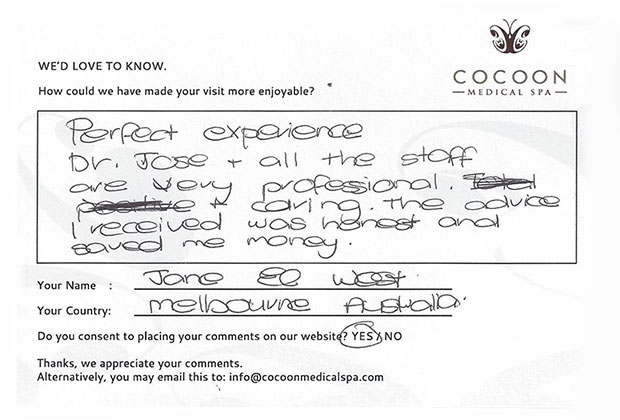 COCOON
MEDICAL SPA
WE'D LOVE TO KNOW.
How could we have made your visit more enjoyable?
Perfect experience
Dr. Jose + all the staff
are very professional. Total
positive + caring. The advice
I received was honest and
saved me money.
Your Name : Jane El West
Your Country: Melbourne Australia.
Do you consent to placing your comments on our website? YES / NO
Thanks, we appreciate your comments.
Alternatively, you may email this to: info@cocoonmedicalspa.com